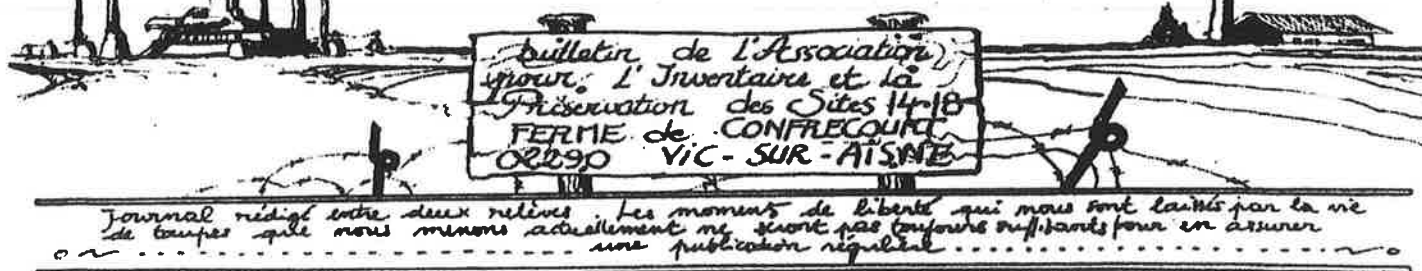 bulletin de l'Association
pour l'Inventaire et la
Préservation des Sites 14-18
FERME de CONFRECOURT
02290 VIC-SUR-AISNE
Journal rédigé entre deux relèves. Les moments de liberté qui nous sont laissés par la vie
de taupes que nous menons actuellement ne seront pas toujours suffisants pour en assurer
une publication régulière